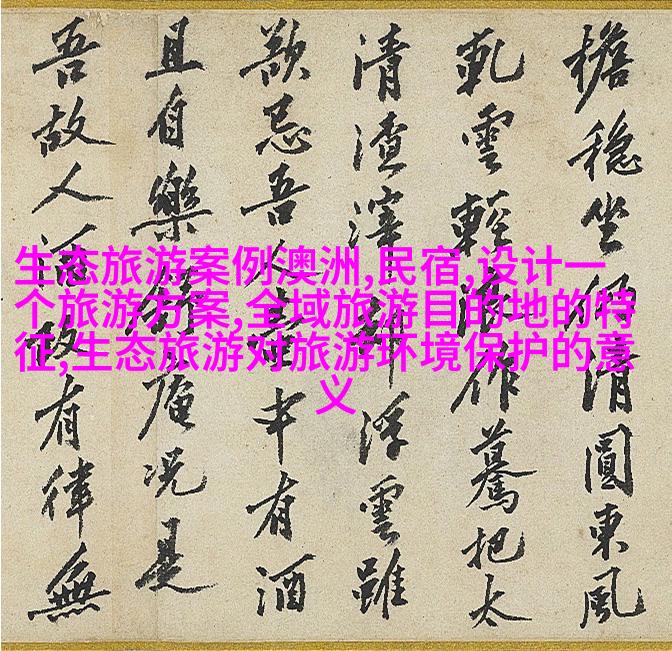 檐穩坐清圓東風
軋雲輕作驀把太
清渣滓浮雲雖
歎忌吾人中有酒
且自樂庵况是
吾故人酒政有律無
生态旅游案例澳洲,民宿,设计一
个旅游方案,全域旅游目的地的特
征,生态旅游对旅游环境保护的意
义